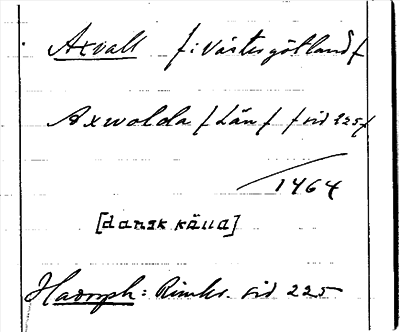 Axvall /: Västergötland /
Axwolda / Län / / sid 225 /
/ 1464
[dansk källa]
Hadorph: Rimkr. sid 225